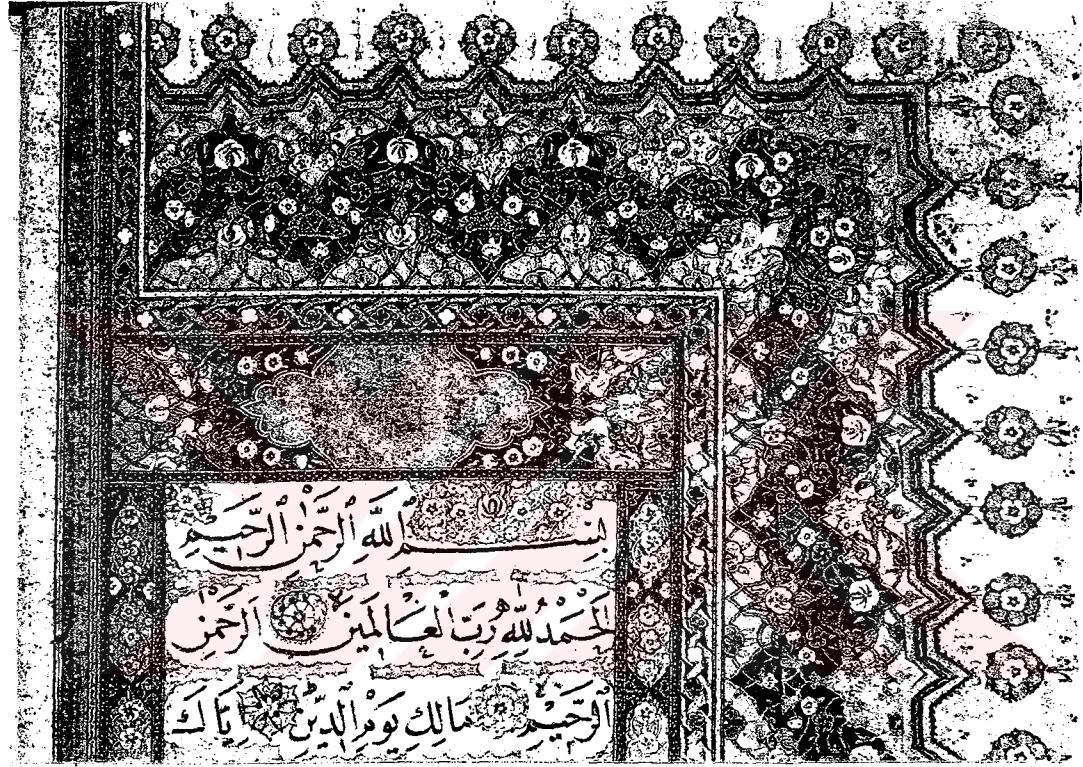 بِسْمِ ٱللَّهِ ٱلرَّحْمَٰنِ ٱلرَّحِيمِ
اَلْحَمْدُ لِلَّهِ رَبِّ الْعَالَمِينَ اَلرَّحْمَٰنِ
اَلرَّحِيمِ مَالِكِ يَوْمِ الدِّينِ اِيَّاكَ